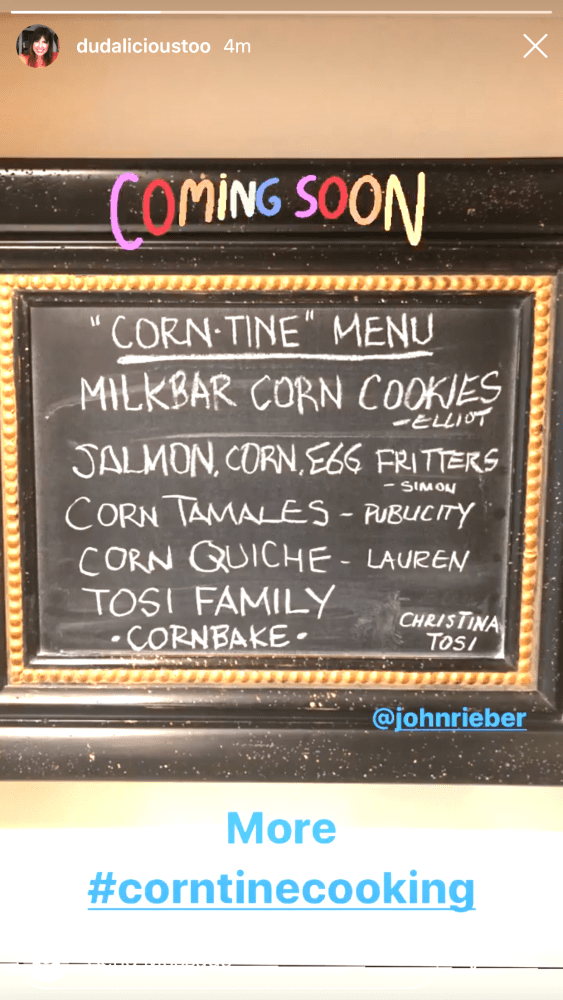 dudalicioustoo 4m
COMING SOON
"CORN-TINE" MENU
MILKBAR CORN COOKIES
-ELLIOT
SALMON, CORN, EGG FRITTERS
- SIMON
CORN TAMALES - PUBLICITY
CORN QUICHE - LAUREN
TOSI FAMILY
•CORNBAKE•
CHRISTINA
TOSI
@johnrieber
More
#corntinecooking